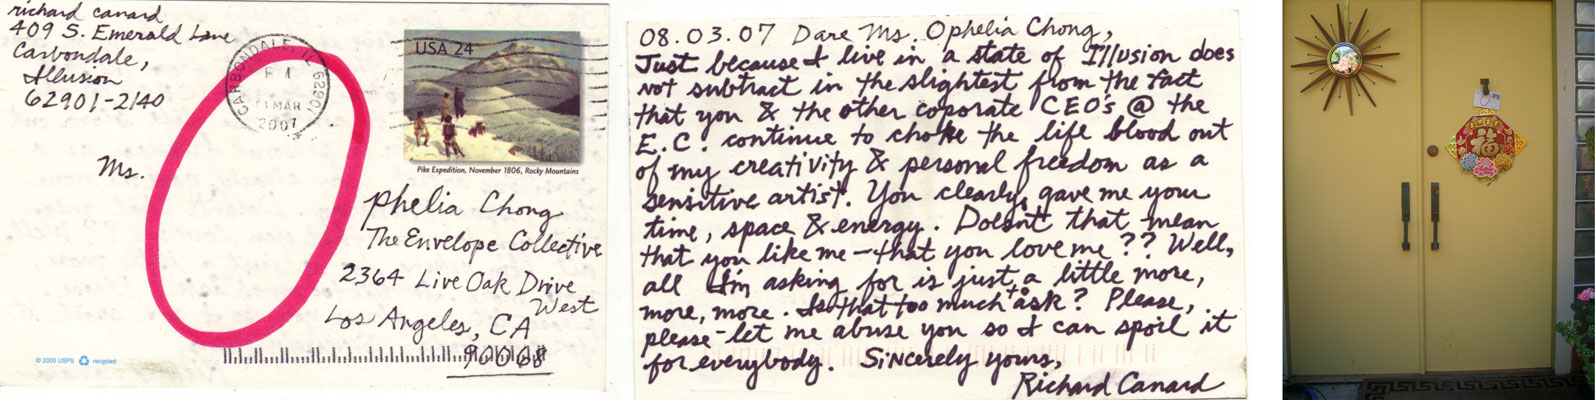 richard canard
409 S. Emerald Lane
Carbondale,
Illusion
62901-2140
CARBONDALE, IL 62901
MAR
2007
USA 24
Pike Expedition, November 1806, Rocky Mountains
Ms.
phelia Chong
The Envelope Collective
2364 Live Oak Drive
West
Los Angeles, CA
90068
© 2005 USPS recycled
08.03.07 Dare Ms. Ophelia Chong,
Just because I live in a state of Illusion does
not subtract in the slightest from the fact
that you & the other coporate CEO's @ the
E.C. continue to choke the life blood out
of my creativity & personal freedom as a
sensitive artist. You clearly gave me your
time, space & energy. Doesn't that mean
that you like me—that you love me?? Well,
all I'm asking for is just a little more,
more, more. Is that too much to ask? Please,
please-let me abuse you so I can spoil it
for everybody. Sincerely yours,
Richard Canard
福